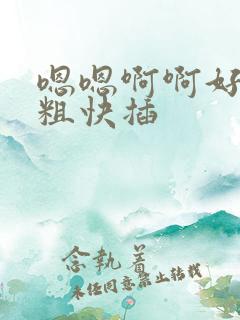 嗯嗯啊啊好
粗快插
念执着
未经同意禁止转载